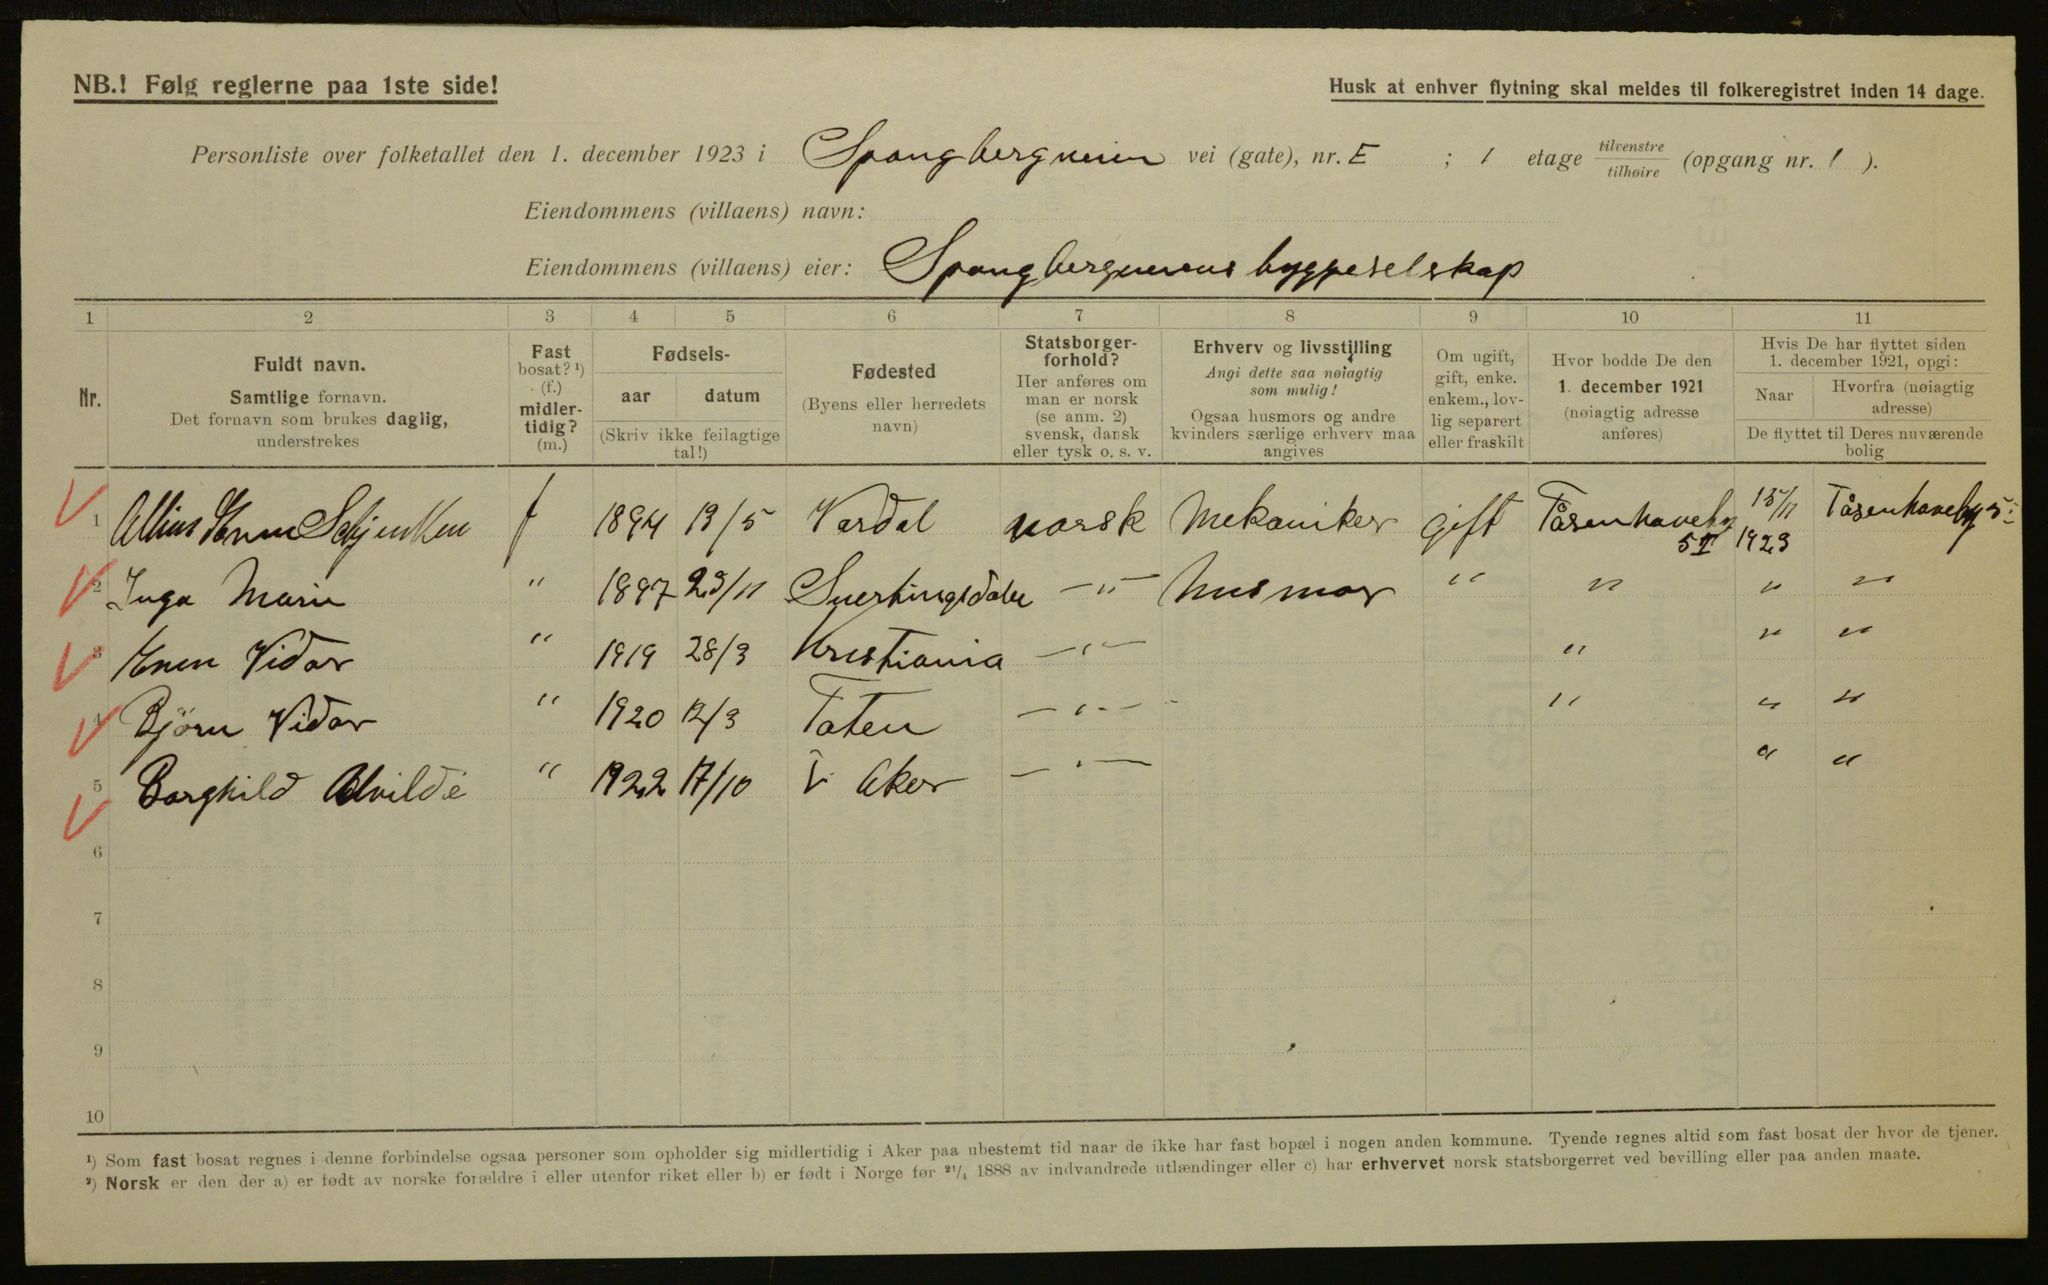 NB.! Følg reglerne paa 1ste side!
Husk at enhver flytning skal meldes til folkeregistret inden 14 dage.
Personliste over folketallet den 1. december 1923 i Spangbergveien vei (gate), nr. E ; 1 etage tilvenstre/tilhøire (opgang nr. 1 ).
Eiendommens (villaens) navn:
Eiendommens (villaens) eier: Spangbergveiens byggeselskap
1 2 3 4 5 6 7 8 9 10 11
Nr.
Fuldt navn.
Samtlige fornavn.
Det fornavn som brukes daglig,
understrekes
Fast
bosat? ¹)
(f.)
midler-
tidig?
(m.)
Fødsels-
aar datum
(Skriv ikke feilagtige
tal!)
Fødested
(Byens eller herredets
navn)
Statsborger-
forhold?
Her anføres om
man er norsk
(se anm. 2)
svensk, dansk
eller tysk o. s. v.
Erhverv og livsstilling
Angi dette saa nøiagtig
som mulig!
Ogsaa husmors og andre
kvinders særlige erhverv maa
angives
Om ugift,
gift, enke.
enkem., lov-
lig separert
eller fraskilt
Hvor bodde De den
1. december 1921
(nøiagtig adresse
anføres)
Hvis De har flyttet siden
1. december 1921, opgi:
Naar
Hvorfra (nøiagtig
adresse)
De flyttet til Deres nuværende
bolig
1 f 1894 13/5 Vardal norsk Mekaniker gift Tåsenhaveby 15/11 Tåsenhaveby 5
1923
2 Inga Marie " 1897 23/11 —"— Husmor " " " "
3 Vidar " 1919 28/3 Kristiania —"— " " "
4 Bjørn Vidar " 1920 12/3 Toten —"— " " "
5 Borghild Alvilde " 1922 17/10 V Aker —"— " "
6
7
8
9
10
¹) Som fast bosat regnes i denne forbindelse ogsaa personer som opholder sig midlertidig i Aker paa ubestemt tid naar de ikke har fast bopæl i nogen anden kommune. Tyende regnes altid som fast bosat der hvor de tjener.
²) Norsk er den der a) er født av norske forældre i eller utenfor riket eller b) er født i Norge før ²¹/₄ 1888 av indvandrede utlændinger eller c) har erhvervet norsk statsborgerret ved bevilling eller paa anden maate.